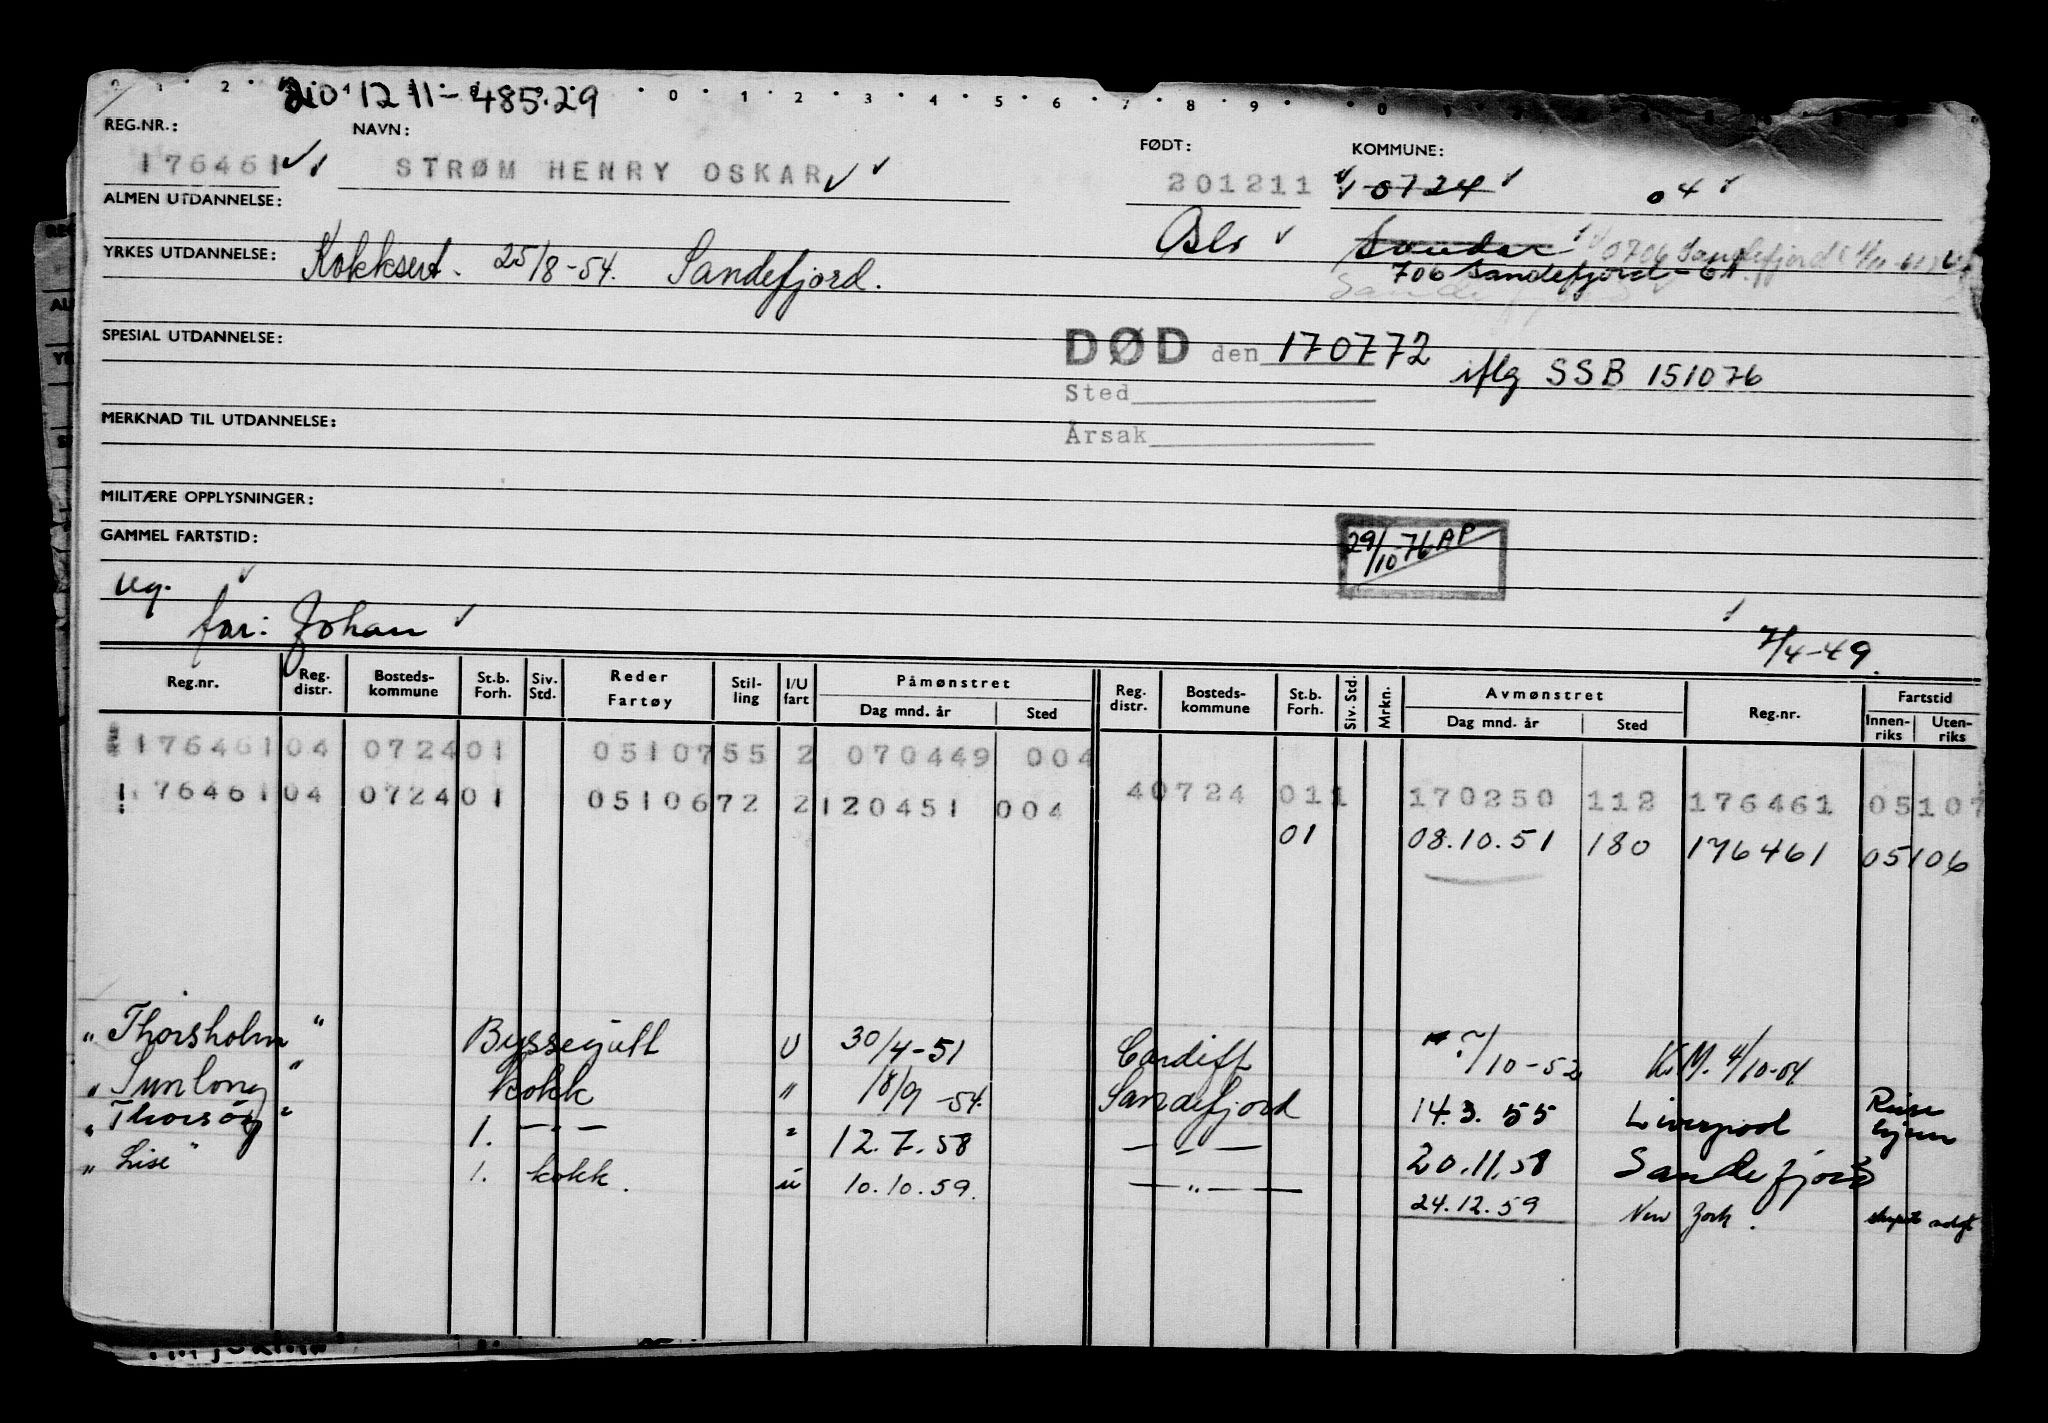 201211-485.29
REG.NR.: NAVN: FØDT: KOMMUNE:
176461 STRØM HENRY OSKAR 201211 0724 04
ALMEN UTDANNELSE:
Oslo Sandar 0706 Sandefjord
706 Sandefjord
YRKES UTDANNELSE: Kokksert. 25/8-54. Sandefjord.
SPESIAL UTDANNELSE:
DØD den 170772 iflg SSB 151076
Sted
Årsak
MERKNAD TIL UTDANNELSE:
MILITÆRE OPPLYSNINGER:
GAMMEL FARTSTID:
29/10 76 AP
ug.
far: Johan
7/4-49.
Reg.nr. Reg. distr. Bosteds-kommune St.b. Forh. Siv. Std. Reder Fartøy Stil-ling I/U fart Påmønstret Dag mnd. år Sted Reg. distr. Bosteds-kommune St.b. Forh. Siv. Std. Mrkn. Avmønstret Dag mnd. år Sted Reg.nr. Fartstid Innen-riks Uten-riks
176461 04 0724 01 0510755 2 070449 004 40724 011 170250 112 176461 05107
176461 04 0724 01 0510672 2 120451 004 01 08.10.51 180 176461 05106
"Thorsholm" Byssegutt U 30/4-51 Cardiff ?/10-52 K.M. 4/10-54
"Sunlong" kokk " 18/9-54. Sandefjord 14.3.55 Liverpool Reise hjem
"Thorsøy" 1. — " — " 12.7.58 — " — 20.11.58 Sandefjord
"Lise" 1. kokk. u 10.10.59. — " — 24.12.59 New York. skipet solgt